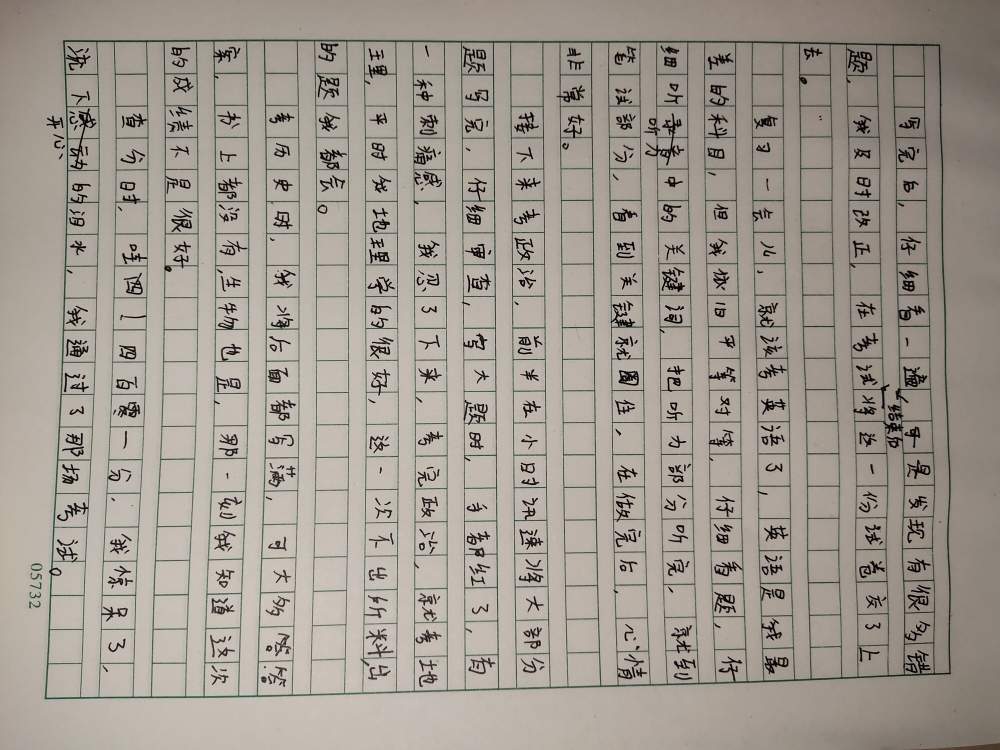 写完后，仔细看一遍，可是发现有很多错
题，我及时改正，在考试结束后将这一份试卷交了上
去。
复习一会儿，就该考英语了，英语是我最
差的科目，但我依旧平等对待，仔细看题，仔
细听听力中的关键词，把听力部分听完，就到
笔试部分，看到关键就圈住，在做完后，心情
非常好。
接下来考政治，前半在小时迅速将大部分
题写完，仔细审查，写大题时，手都红了，有
一种刺痛感，我忍了下来，考完政治，就考地
理，平时我地理学的很好，这一次不出所料，出
的题我都会。
考历史时，我将后面都写满，可大多答答
案，书上都没有，生物也是，那一刻我知道这次
的成绩不是很好。
查分时，哇四 四百零一分，我惊呆了，
流下开心的泪水，我通过了那场考试。
05732